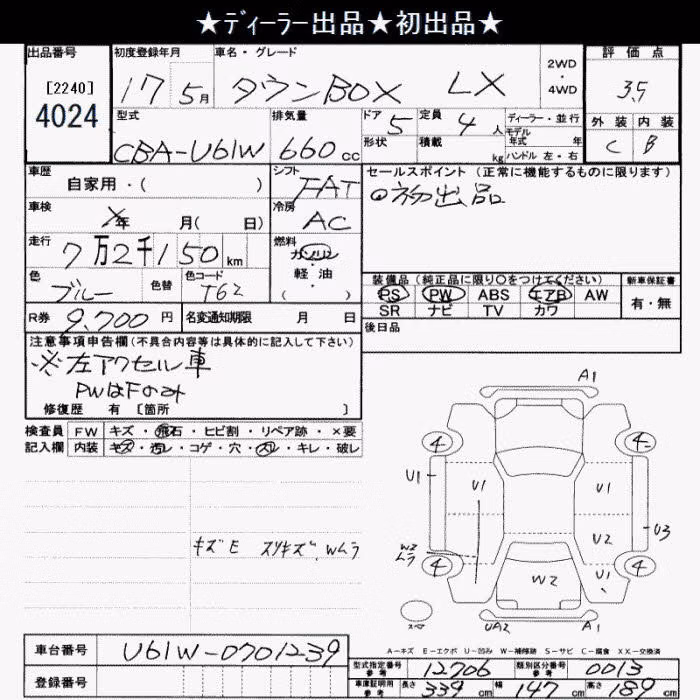 ★ディーラー出品★初出品★
出品番号 初度登録年月 車名・グレード 2WD・4WD 評価点
[2240] 17 5月 タウンBOX LX 3.5
4024
型式 排気量 ドア 5 定員 4人 ディーラー・並行 外装 内装
CBA-U61W 660cc 形状 積載 kg モデル年式 年 ハンドル 左・右 C B
車歴 自家用・( ) シフト FAT セールスポイント (正常に機能するものに限ります)
車検 ✗年 月( 日) 冷房 AC 初出品
走行 7万2千150km 燃料 ガソリン・軽油・( )
色 ブルー 色替 色コード T62 装備品 (純正品に限り○をつけてください) 新車保証書
PS PW ABS エアB AW 有・無
SR ナビ TV カワ
R券 9,700円 名変通知期限 月 日 後日品
注意事項申告欄(不具合内容等は具体的に記入して下さい)
※左アクセル車
PWはFのみ
修復歴 有 [箇所 ]
検査員 FW キズ・飛石・ヒビ割・リペア跡・×要
記入欄 内装 キズ・汚レ・コゲ・穴・スレ・キレ・破レ
キズE スリキズ、Wムラ
A1
4 4
U1 U1 U1
U3
W2ムラ U2
4 W2 U1 4
スペア UA2 A1
A-キズ E-エクボ U-凹み W-補修跡 S-サビ C-腐食 XX-交換済
車台番号 U61W-0701239
型式指定番号 参考 12706 類別区分番号 参考 0013
登録番号 車庫証明用 参考 長さ 339cm 幅 147cm 高さ 189cm